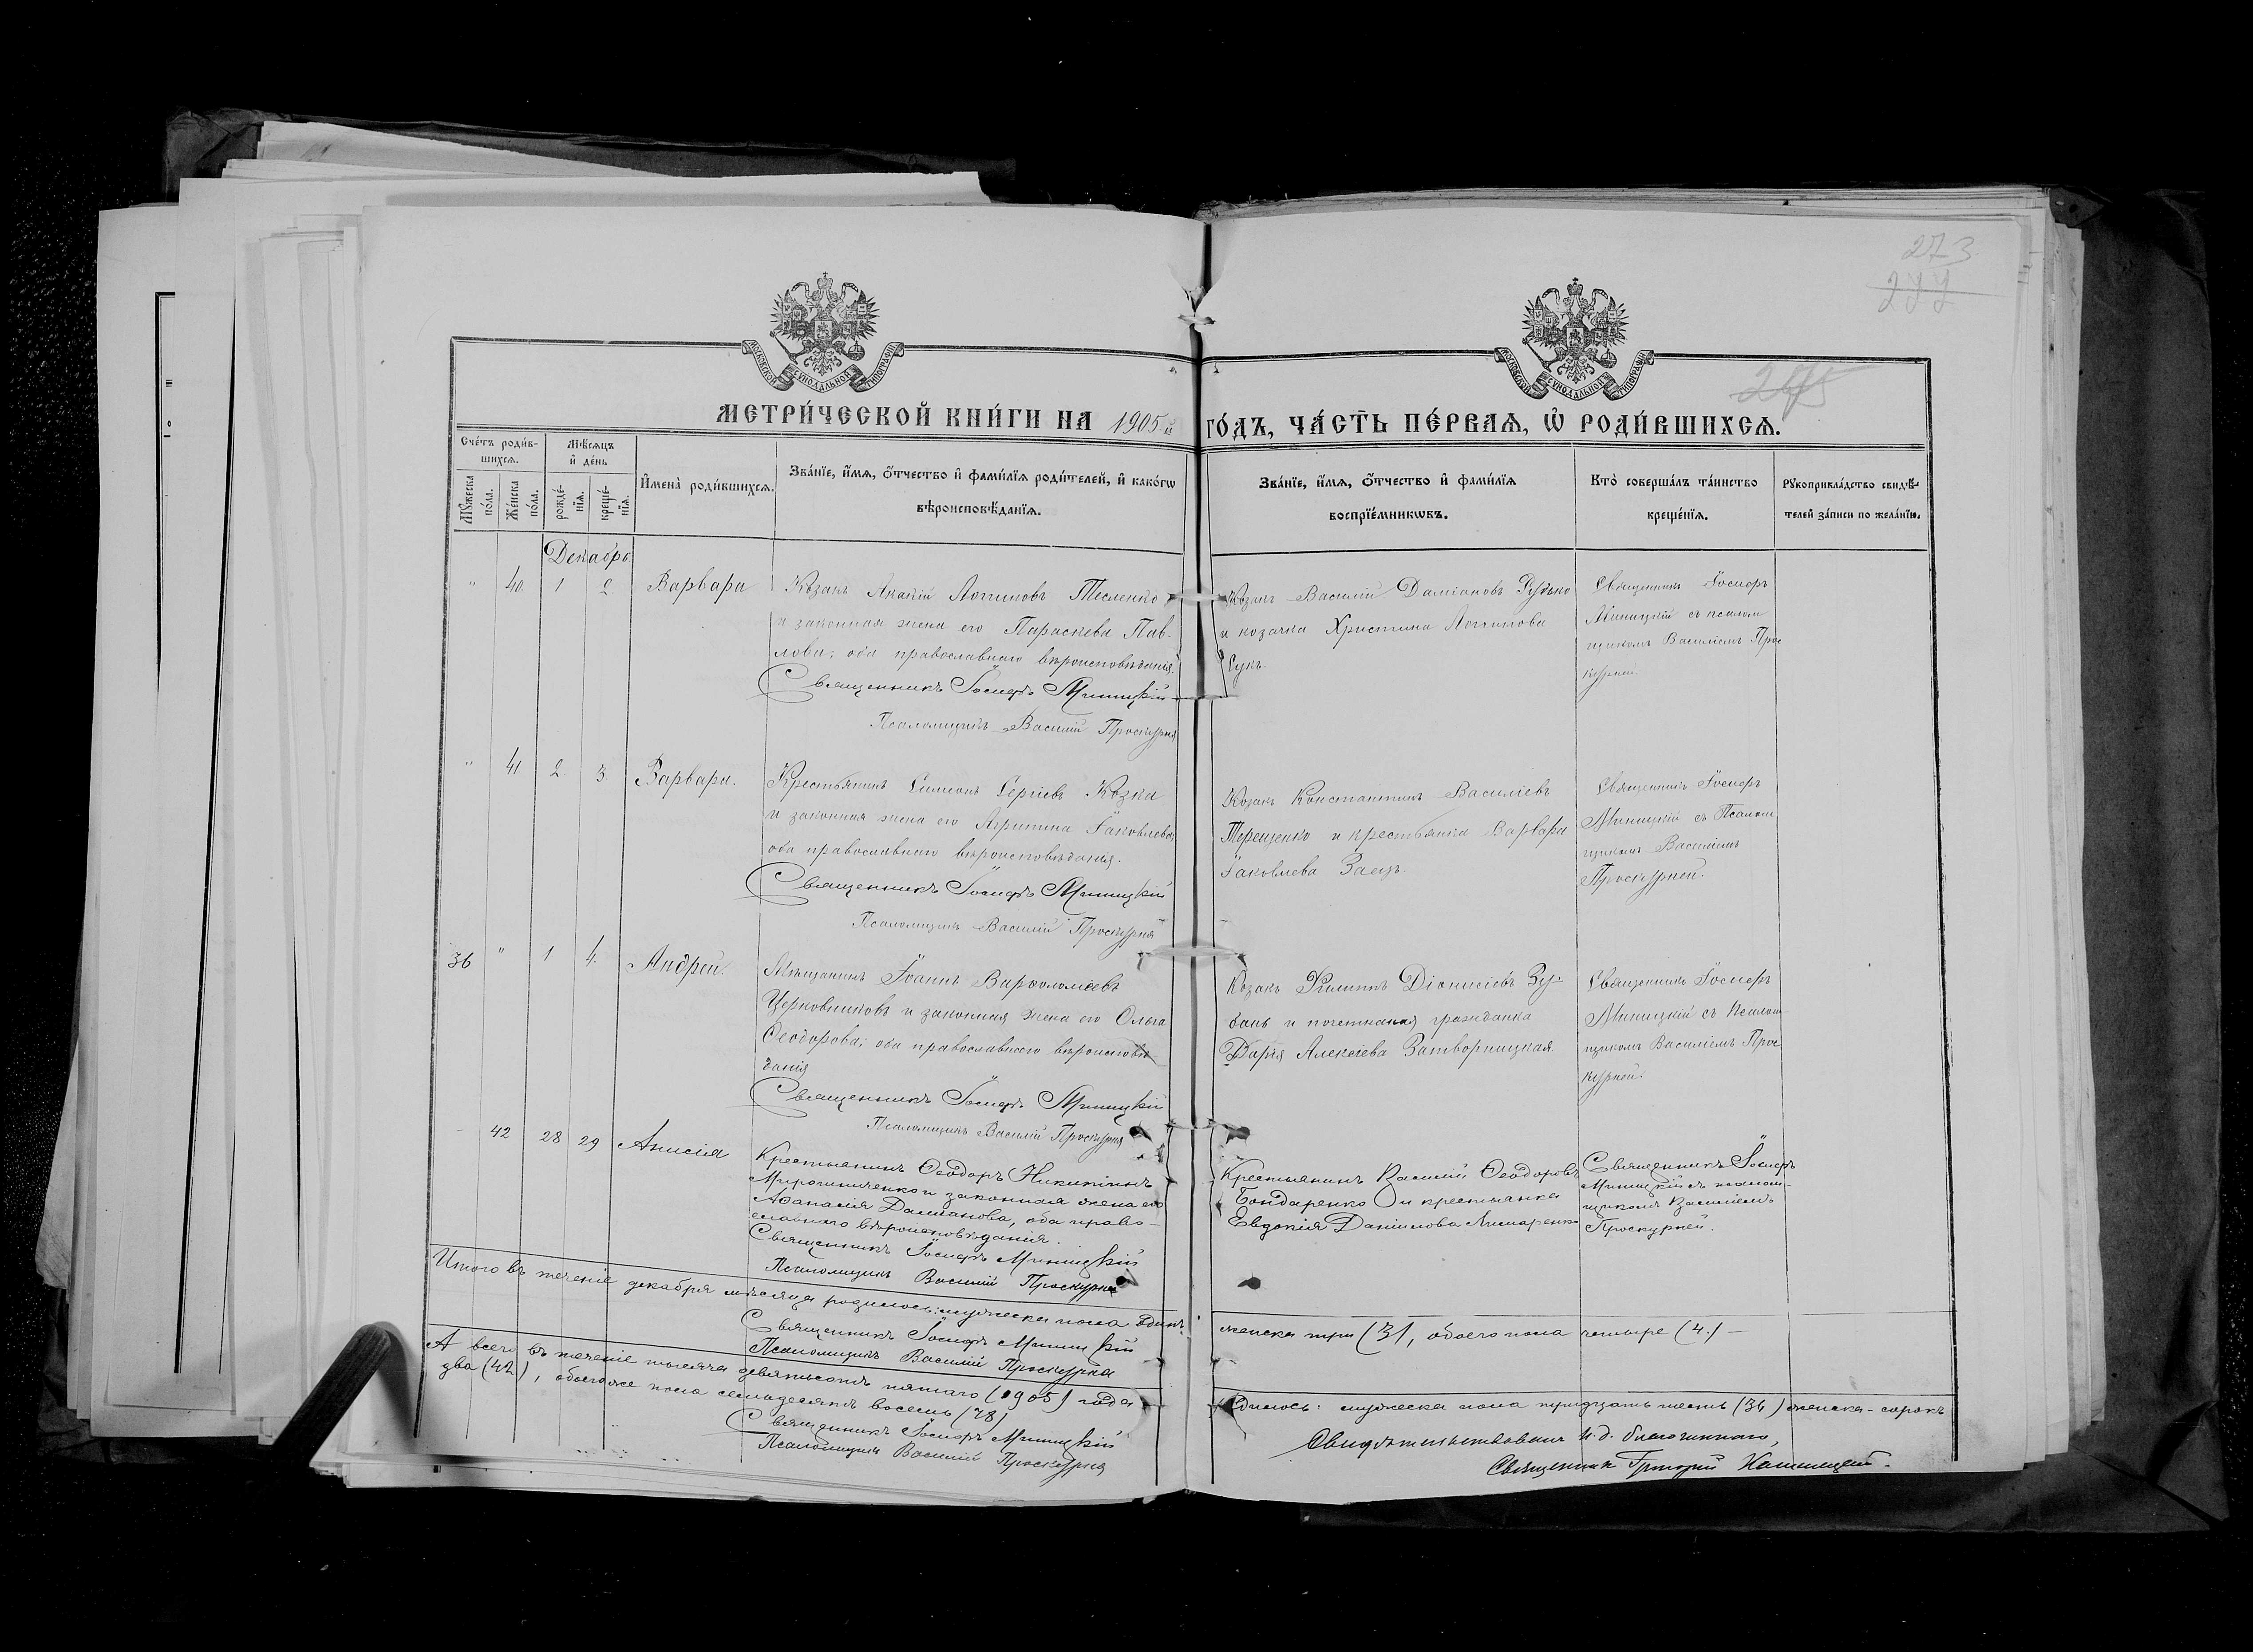 273
277
МОСКОВСКОЙ СѴНОДАЛЬНОЙ ТИПОГРАФІИ
МОСКОВСКОЙ СѴНОДАЛЬНОЙ ТИПОГРАФІИ
МЕТРИ́ЧЕСКОЙ КНИ́ГИ НА 1905й ГО́ДЪ, ЧА́СТЬ ПЕ́РВАѦ, Ѡ҆ РОДИ́ВШИХСѦ.
Сче́тъ роди́в-
шихсѧ.
Мѣ́сѧцъ
и҆ де́нь
Мꙋ́жеска
по́ла.
Же́нска
по́ла.
рожде́-
нїѧ.
креще́-
нїѧ.
И҆мена̀ роди́вшихсѧ.
Зва́нїе, и҆́мѧ, ѻ҆́тчество и҆ фами́лїѧ роди́телей, и҆ како́гѡ
вѣроисповѣ́данїѧ.
Зва́нїе, и҆́мѧ, ѻ҆́тчество и҆ фами́лїѧ
воспрїе́мникѡвъ.
Кто̀ соверша́лъ та́инство
креще́нїѧ.
Рꙋкоприкла́дство свидѣ́-
телей за́писи по жела́нїю.
Декабрь
" 40. 1 2. Варвара
Козакъ Акакій Логгиновъ Тесленко
и законная жена его Параскева Пав-
лова; оба православнаго вѣроисповѣданія.
Священникъ Іосифъ Миницкій
Псаломщикъ Василій Проскурня
Козакъ Василій Даміановъ Рудько
и козачка Христина Логгинова
Сукъ.
Священникъ Іосифъ
Миницкій съ псалом
щикомъ Василіемъ Прос
курней.
" 41 2. 3. Варвара.
Крестьянинъ Симеонъ Сергіевъ Козка
и законная жена его Агрипина Іаковлева;
оба православнаго вѣроисповѣданія.
Священникъ Іосифъ Миницкій
Псаломщикъ Василій Проскурня
Козакъ Константинъ Василіевъ
Терещенко и крестьянка Варвара
Іаковлева Заецъ.
Священникъ Іосифъ
Миницкій съ Псалом
щикомъ Василіемъ
Проскурней.
36 " 1 4. Андрей.
Мѣщанинъ Іоаннъ Варѳоломеевъ
Церковниковъ и законная жена его Ольга
Ѳеодорова; оба православнаго вѣроисповѣ
данія
Священникъ Іосифъ Миницкій
Псаломщикъ Василій Проскурня
Козакъ Филиппъ Діонисіевъ Зу-
бань и почетная гражданка
Дарія Алексіева Затворницкая
Священникъ Іосифъ
Миницкій съ Псалом
щикомъ Василіемъ Прос
курней.
42 28 29 Анисія
Крестьянинъ Ѳеодоръ Никитинъ
Мирошниченко и законная жена его
Аѳанасія Даміанова, оба право-
славнаго вѣроисповѣданія.
Священникъ Іосифъ Миницкій
Псаломщикъ Василій Проскурня
Крестьянинъ Василій Ѳеодоровъ
Бондаренко и крестьянка
Евдокія Даніилова Лимаренко
Священникъ Іосифъ
Миницкій съ псалом-
щикомъ Василіемъ
Проскурней.
Итого въ теченіе декабря мѣсяца родилось: мужеска пола одинъ,
женска три (3), обоего пола четыре (4.) —
Священникъ Іосифъ Миницкій
Псаломщикъ Василій Проскурня
А всего въ теченіе тысяча девятьсотъ пятаго (1905) года
родилось: мужеска пола тридцать шесть (36) женска - сорокъ
два (42), обоего же пола семьдесятъ восемь (78)
Священникъ Іосифъ Миницкій
Псаломщикъ Василій Проскурня
Свидѣтельствовалъ И.д. благочиннаго,
Священникъ Григорій